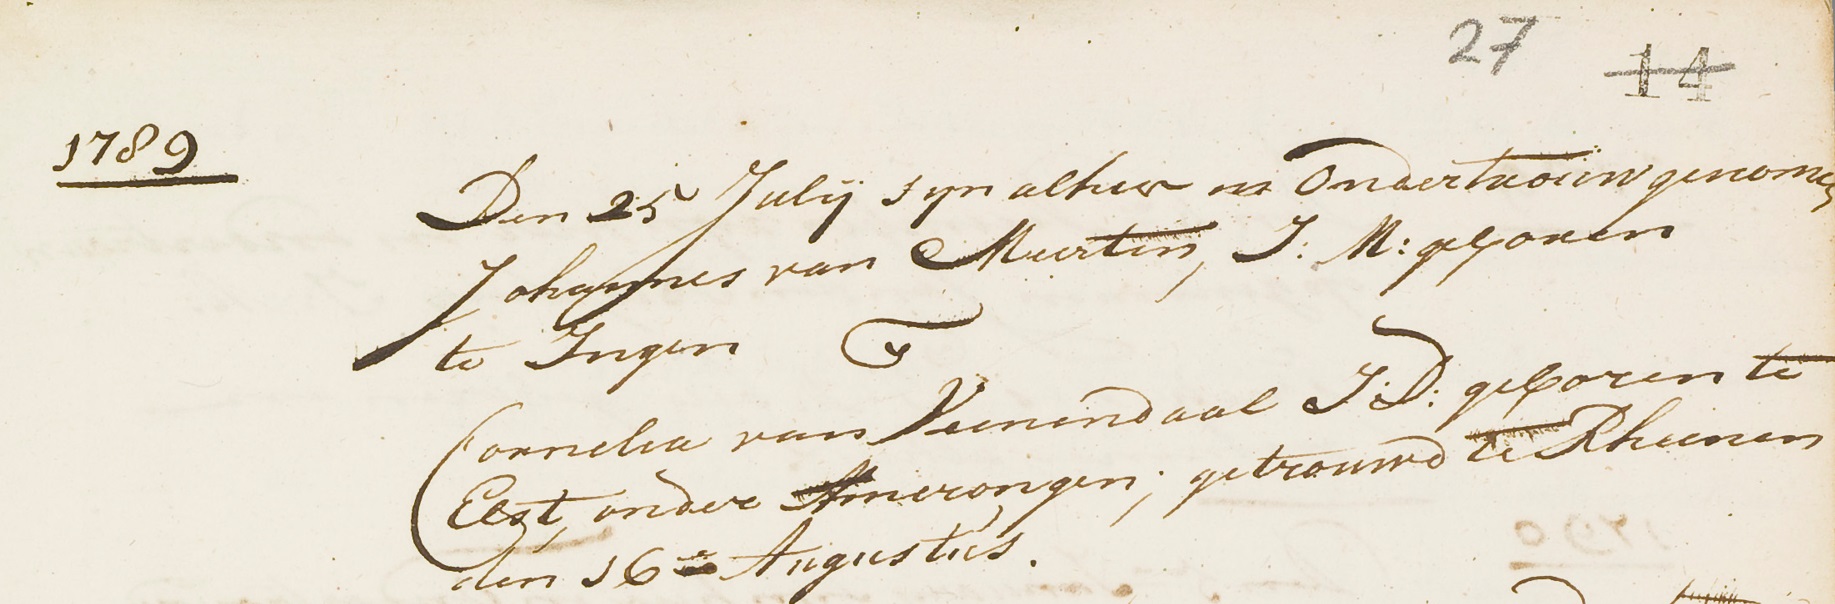 27 14
1789
Den 25 Julij syn alhier in Ondertrouw genomen
Johannes van Meerten, J: M: geboren
te Ingen &
Cornelia van Veenendaal J: D: geboren te
Elst, onder Amerongen; getrouwd te Rheenen
den 16en Augustus.